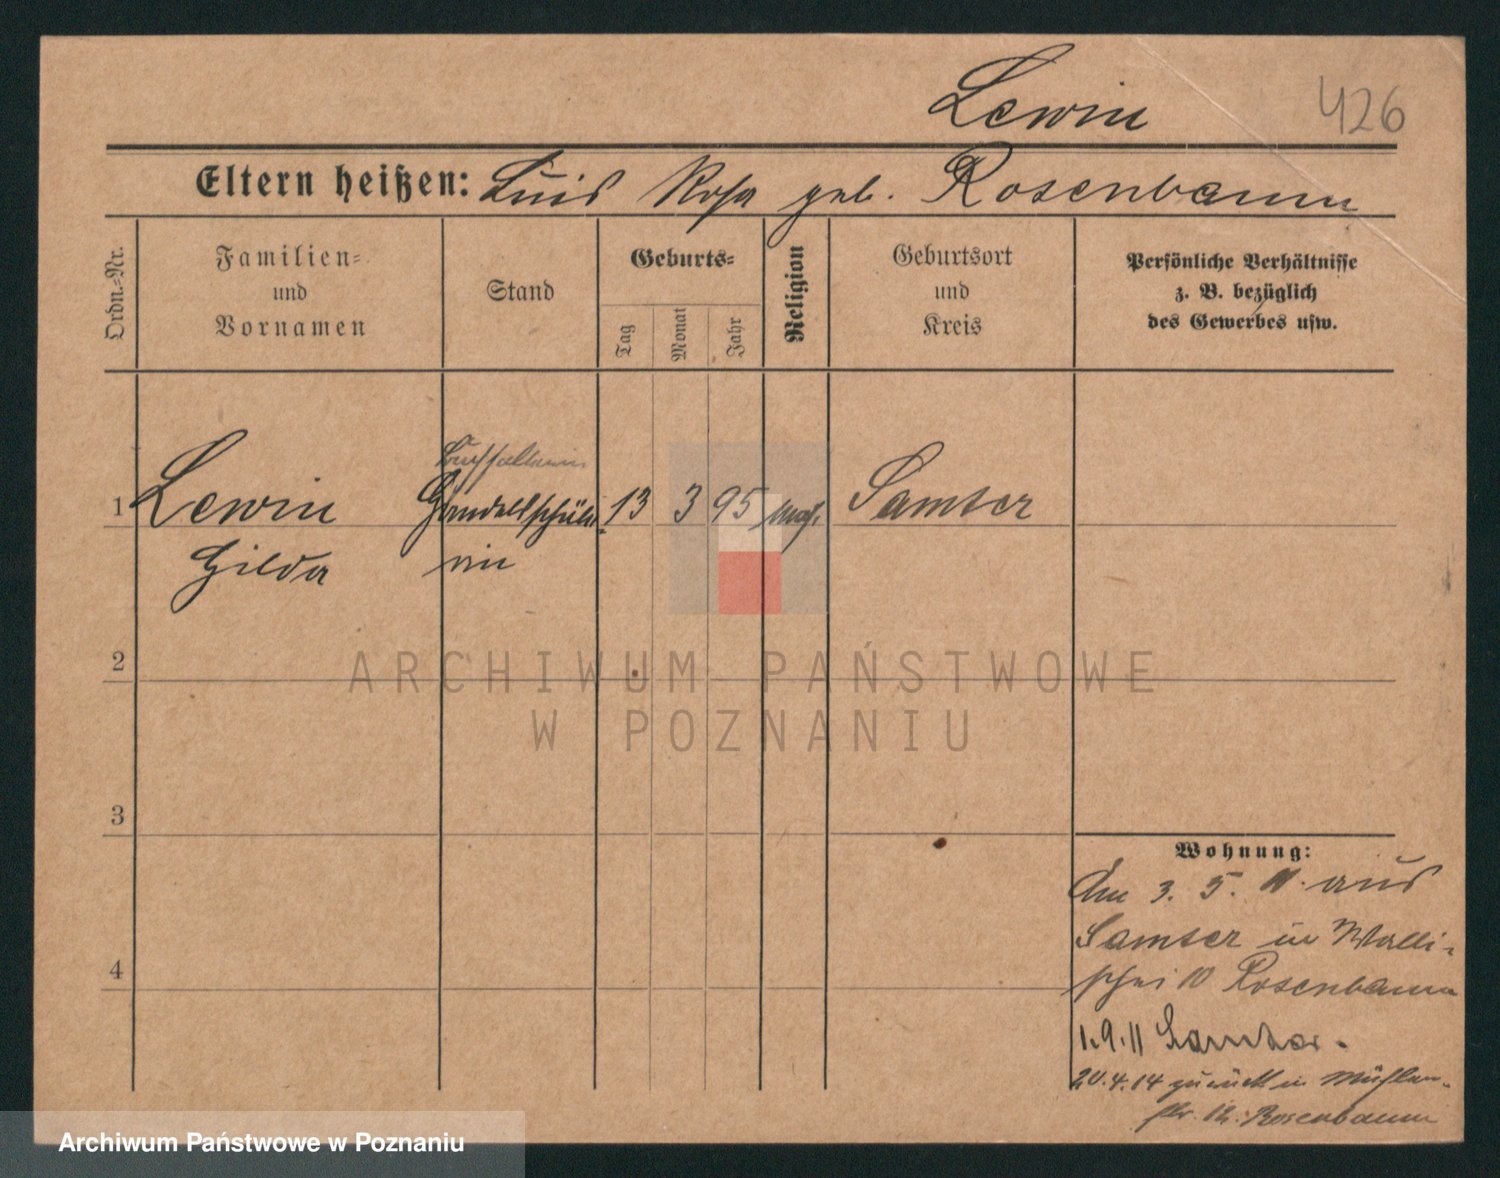 Lewin
426
Eltern heißen: Luis Rosa geb. Rosenbaum
Ordn.-Nr.
Familien-
und
Vornamen
Stand
Geburts-
Tag
Monat
Jahr
Religion
Geburtsort
und
Kreis
Persönliche Verhältnisse
z. B. bezüglich
des Gewerbes usw.
Buchhalterin
1 Lewin Handelsschüle- 13 3 95 mos. Samter
Hilda rin
2
3
4
Wohnung:
Am 3. 5. 11. aus
Samter in Walli-
schei 10 Rosenbaum
1.9.11 Samter.
20.4.14 zurück in Mühlen-
str. 12. Rosenbaum
ARCHIWUM PAŃSTWOWE
W POZNANIU
Archiwum Państwowe w Poznaniu